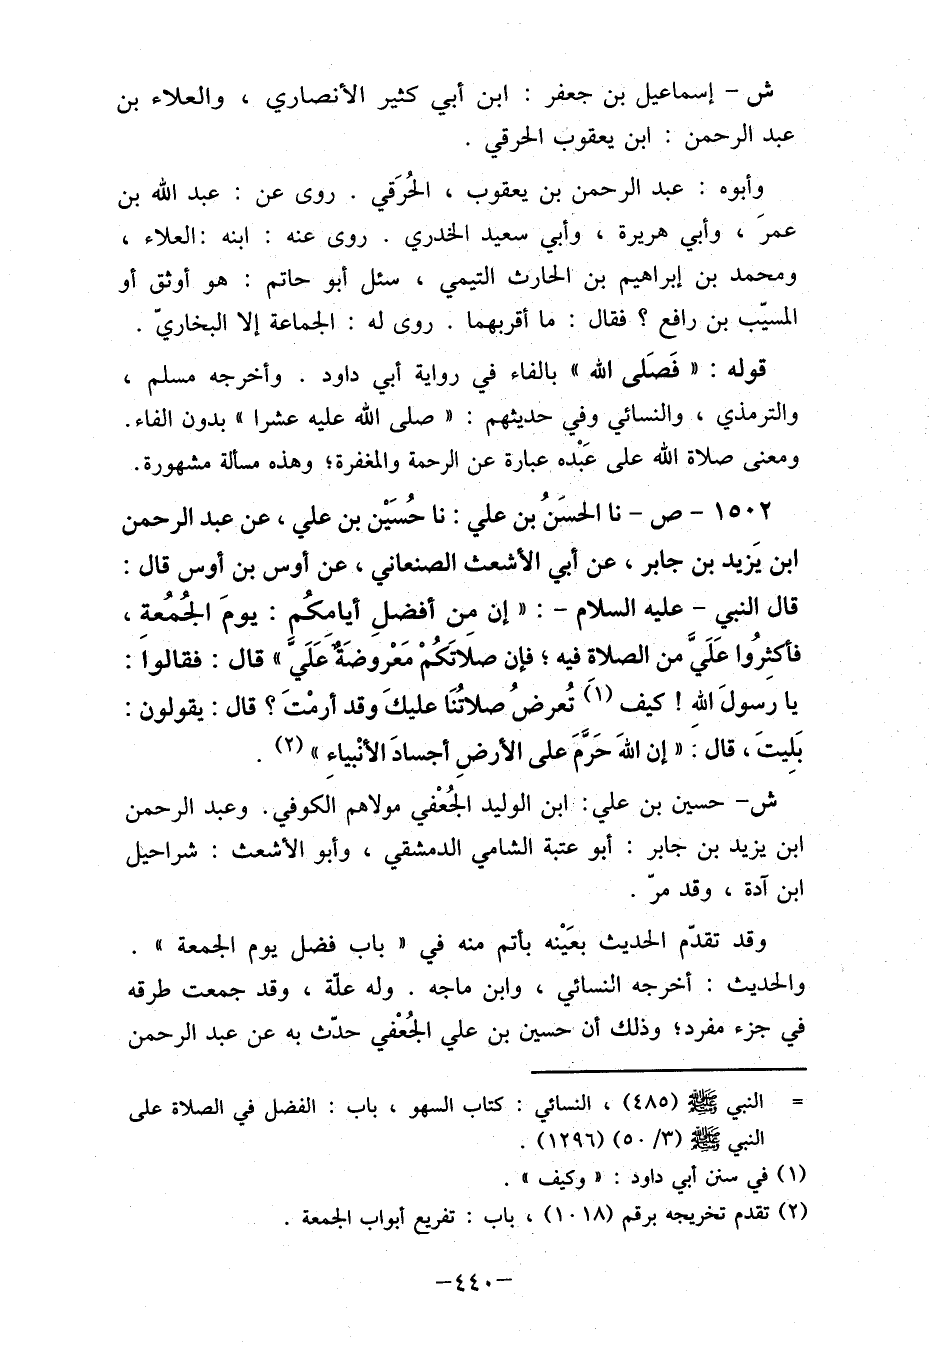 ش – إسماعيل بن جعفر : ابن أبي كثير الأنصاري ، والعلاء بن
عبد الرحمن : ابن يعقوب الحرقي .
وأبوه : عبد الرحمن بن يعقوب ، الحُرَقي . روى عن : عبد الله بن
عمرَ ، وأبي هريرة ، وأبي سعيد الخدري . روى عنه : ابنه :العلاء ،
ومحمد بن إبراهيم بن الحارث التيمي ، سئل أبو حاتم : هو أوثق أو
المسيّب بن رافع ؟ فقال : ما أقربهما . روى له : الجماعة إلا البخاريّ .
قوله : « فَصَلى الله » بالفاء في رواية أبي داود . وأخرجه مسلم ،
والترمذي ، والنسائي وفي حديثهم : « صلى الله عليه عشرا » بدون الفاء.
ومعنى صلاة الله على عَبْده عبارة عن الرحمة والمغفرة؛ وهذه مسألة مشهورة.
١٥٠٢ – ص – نا الحسَنُ بن علي : نا حُسَيْن بن علي ، عن عبد الرحمن
ابن يَزيد بن جابر ، عن أبي الأشعث الصنعاني ، عن أوس بن أوس قال :
قال النبي – عليه السلام – : « إن مِن أفضلِ أيامِكُم : يومَ الجُمُعةِ ،
فأكثِرُوا عَلَيَّ من الصلاةِ فيه ؛ فإن صلاتَكُمْ مَعْروضَةٌ عَلَيَّ » قال : فقالوا :
يا رسولَ اللهِ ! كيف (١) تُعرضُ صلاتُنَا عليكَ وقد أرمْتَ ؟ قال : يقولون :
بَلِيتَ ، قال : « إن اللهَ حَرَّمَ على الأرضِ أجسادَ الأنْبياءِ » (٢) .
ش– حسين بن علي : ابن الوليد الجُعْفي مولاهم الكوفي. وعبد الرحمن
ابن يزيد بن جابر : أبو عتبة الشامي الدمشقي ، وأبو الأشعث : شراحيل
ابن آدة ، وقد مرّ .
وقد تقدّم الحديث بعَيْنه بأتم منه في « باب فضل يوم الجمعة » .
والحديث : أخرجه النسائي ، وابن ماجه . وله علّة ، وقد جمعت طرقه
في جزء مفرد؛ وذلك أن حسين بن علي الجُعْفي حدّث به عن عبد الرحمن
= النبي ﷺ (٤٨٥) ، النسائي : كتاب السهو ، باب : الفضل في الصلاة على
النبي ﷺ (٣/ ٥٠) (١٢٩٦) .
(١) في سنن أبي داود : « وكيف » .
(٢) تقدم تخريجه برقم (١٠١٨) ، باب : تفريع أبواب الجمعة .
–٤٤٠–